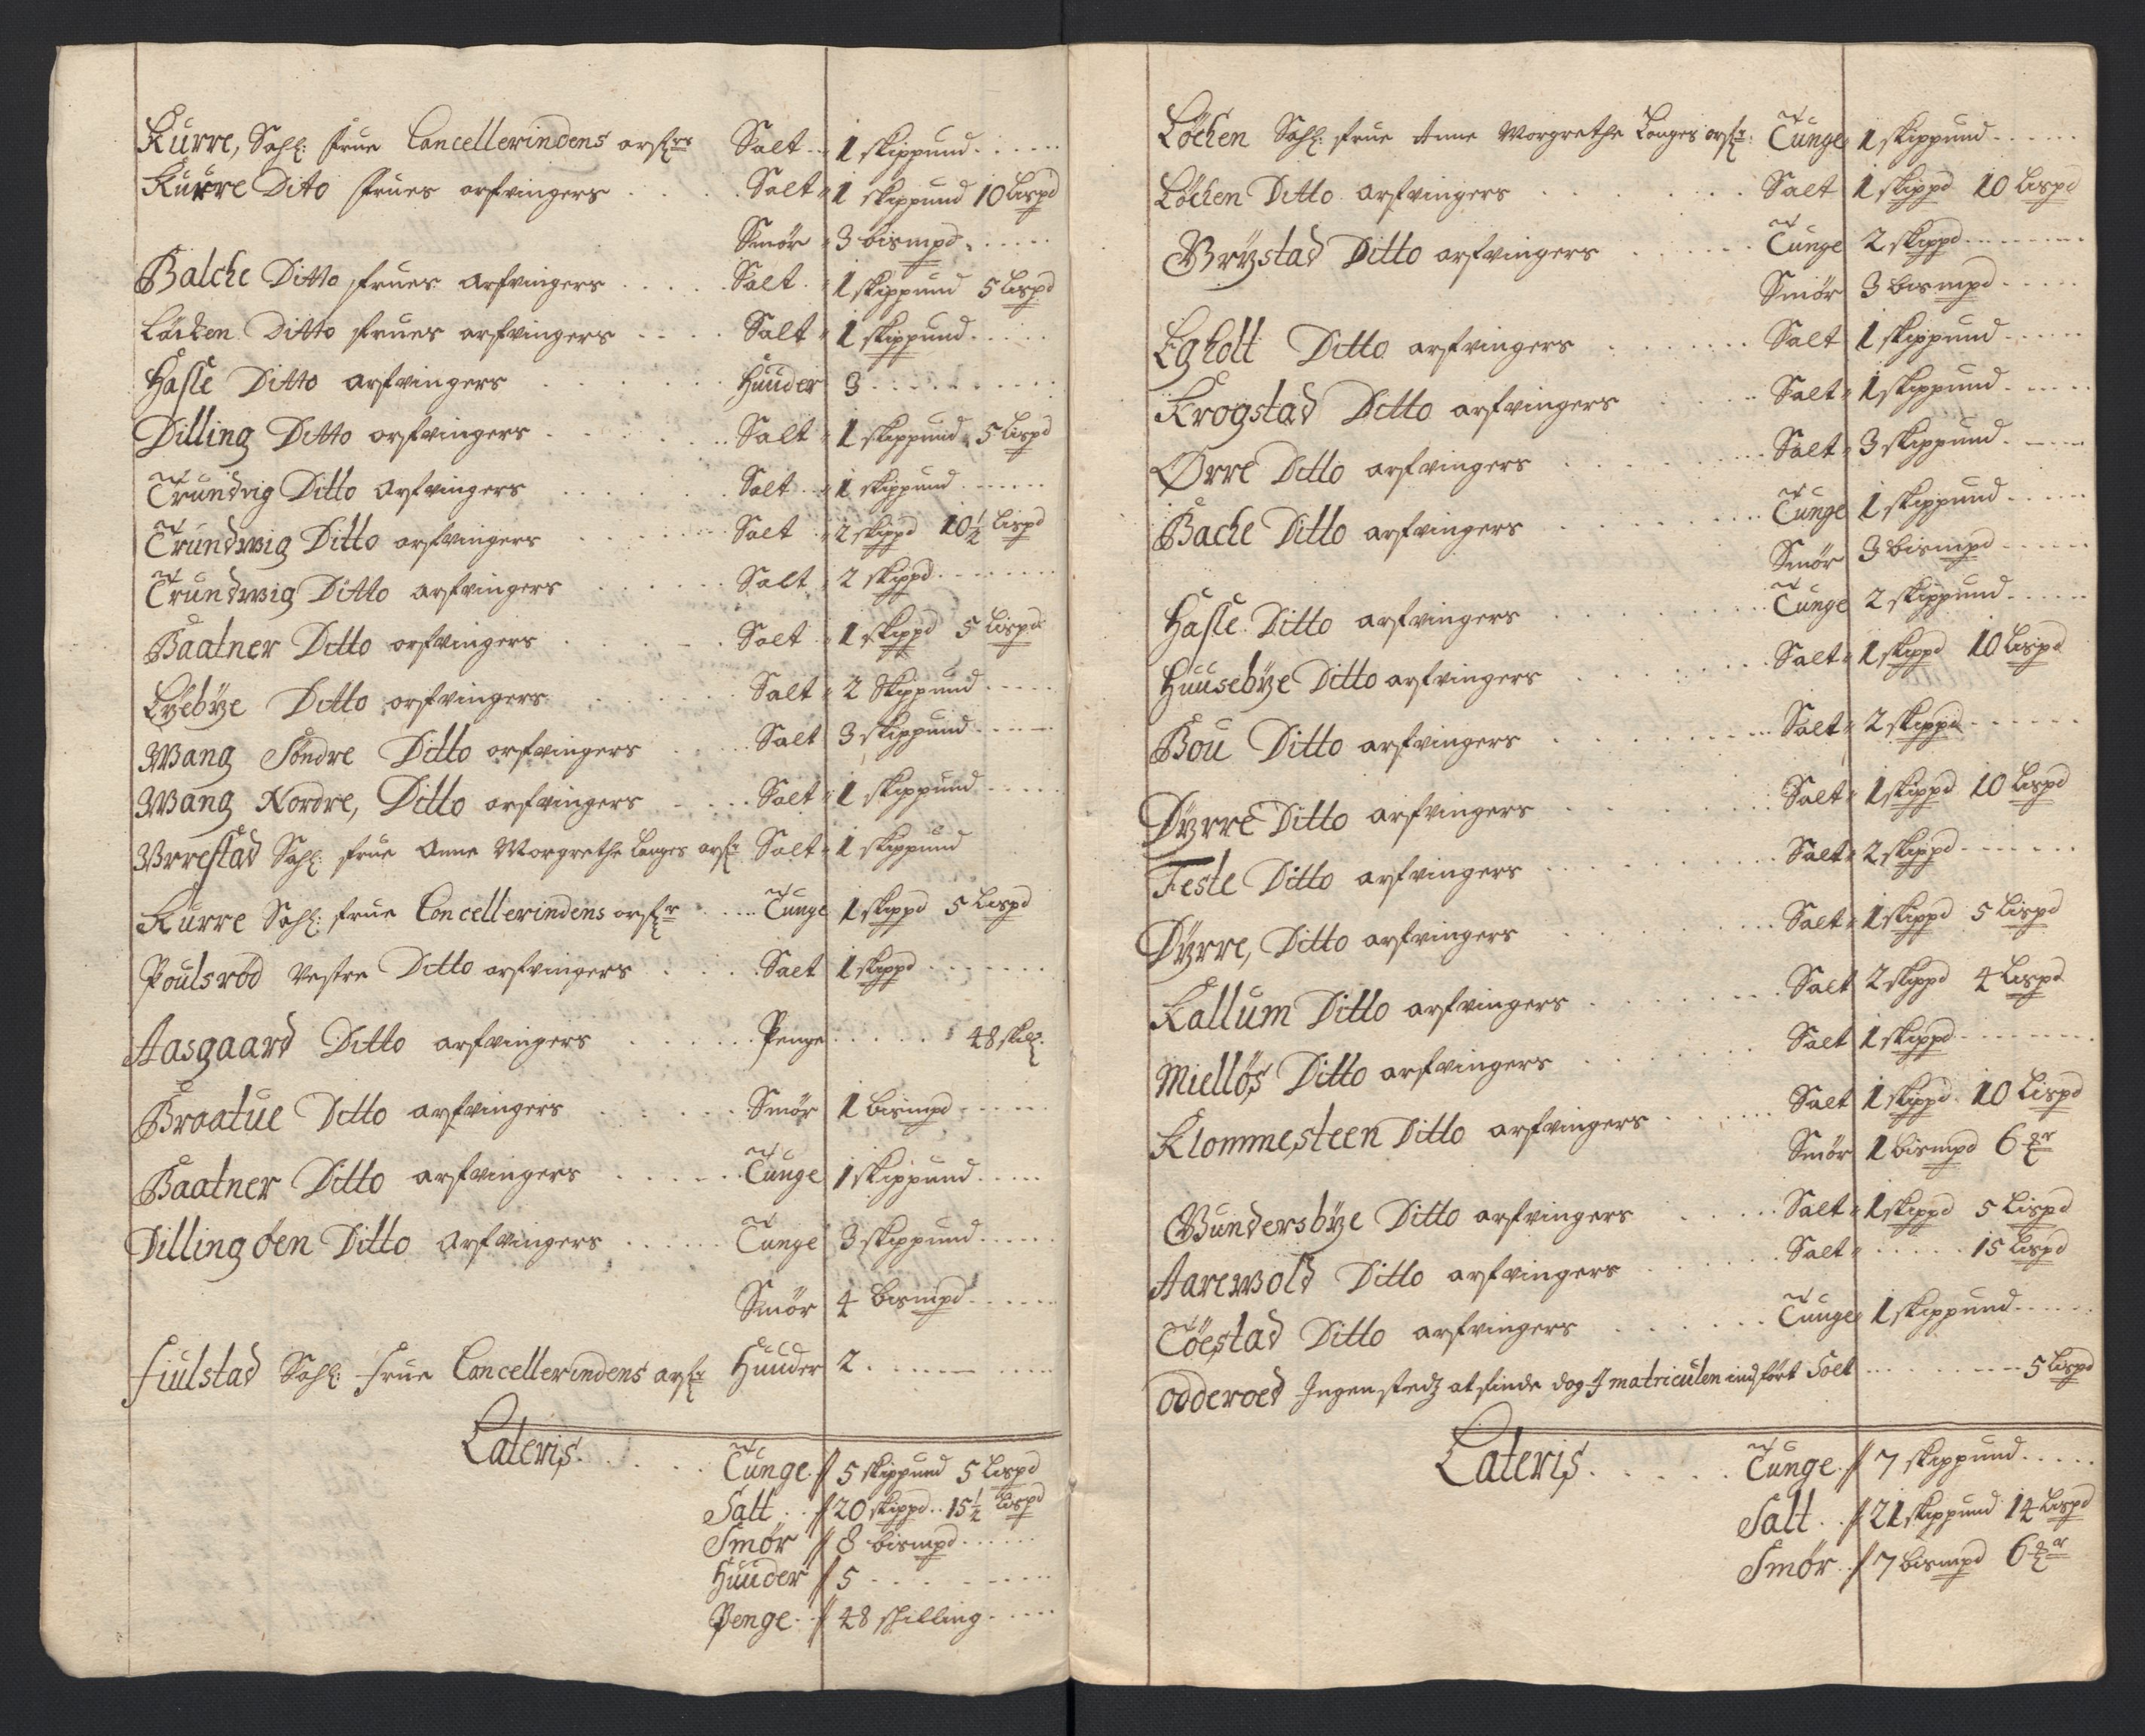 Kurre, Sahl: Frue Cancellerindens arf:rs Salt 1 skippund
Kurre Dito Frues arfvingers Salt 1 skippund 10 Lispd
Smør 3 bismpd
Balche Ditto Frues Arfvingers Salt 1 skippund 5 Lispd
Löcken Ditto Frues arfvingers Salt 1 skippund
Hasle Ditto arfvingers Huuder 3
Dilling Ditto arfvingers Salt 1 skippund 5 Lispd
Trundvig Ditto Arfvingers Salt 1 skippund
Trundwig Ditto arfvingers Salt 2 skippd 10½ Lispd
Trundwig Ditto arfvingers Salt 2 skippd
Baatner Ditto arfvingers Salt 1 skippd 5 Lispd
Lyebÿe Ditto arfvingers Salt 2 Skippund
Wang Söndre Ditto arfvingers Salt 3 skippund
Wang Nordre, Ditto arfvingers Salt 1 skippund
Wrestad Sahl: Frue Anne Morgrethe Langes arf:r Salt 1 skippund
Kurre Sahl: Frue Cancellerindens arf:r Tunge 1 skippd 5 Lispd
Poulsröd Vestre Ditto arfvingers Salt 1 skippd
Aasgaard Ditto arfvingers Penge 48 skill:
Braatue Ditto arfvingers Smør 1 bismpd
Baatner Ditto arfvingers Tunge 1 skippund
Dillingöen Ditto Arfvingers Tunge 3 skippund
Smør 4 bismpd
Fiulstad Sahl: Frue Cancellerindens arf:r Huuder 2
Lateris Tunge 5 skippund 5 Lispd
Salt 20 skippd 15½ Lispd
Smør 8 bismpd
Huuder 5
Penge 48 skilling
Löchen Sahl: Frue Anne Morgrethe Langes arf:r: Tunge 1 skippund
Löchen Ditto Arfvingers Salt 1 skippd 10 Lispd
Grÿstad Ditto arfvingers Tunge 2 skippd
Smør 3 bismpd
Egholt Ditto arfvingers Salt 1 skippund
Krogstad Ditto arfvingers Salt 1 skippund
Ørre Ditto arfvingers Salt 3 skippund
Bache Ditto arfvingers Tunge 1 skippund
Smør 3 bismpd
Hasle Ditto arfvingers Tunge 2 skippund
Huusebÿe Ditto arfvingers Salt 1 skippd 10 Lispd
Bou Ditto arfvingers Salt 2 skippd
Dÿrre Ditto arfvingers Salt 1 skippd 10 Lispd
Feste Ditto arfvingers Salt 2 skippd
Dÿrre, Ditto arfvingers Salt 1 skippd 5 Lispd
Kallum Ditto arfvingers Salt 2 skippd 4 Lispd
Miellös Ditto arfvingers Salt 1 skippd
Klommesteen Ditto arfvingers Salt 1 skippd 10 Lispd
Smør 1 bismpd 6
Gundersbÿe Ditto arfvingers Salt 1 skippd 5 Lispd
Aarewold Ditto arfvingers Salt 15 Lispd
Töestad Ditto arfvingers Tunge 1 skippund
Odderoed Ingenstedz at finde dog I matriculen indfört Salt 5 Lispd
Lateris Tunge 7 skippund
Salt 21 skippund 14 Lispd
Smør 7 bismpd 6